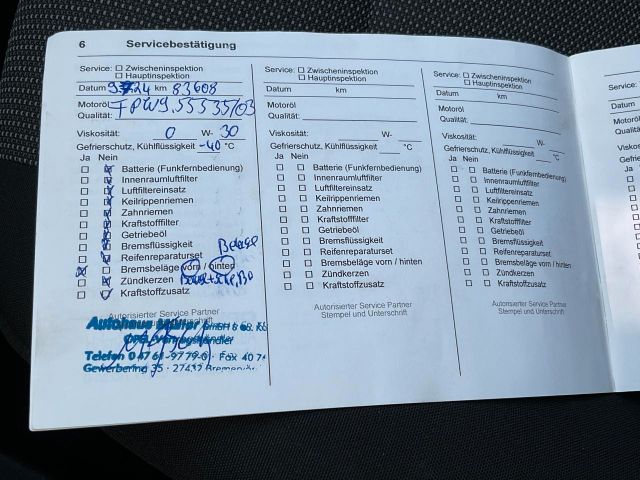 6 Servicebestätigung
Service: ☐ Zwischeninspektion
☐ Hauptinspektion
Datum 9.7.24 km 83608
Motoröl
Qualität:
Viskosität: 0 W- 30
Gefrierschutz, Kühlflüssigkeit -40 °C
Ja Nein
Batterie (Funkfernbedienung)
Innenraumluftfilter
Luftfiltereinsatz
Keilrippenriemen
Zahnriemen
Kraftstofffilter
Getriebeöl
Bremsflüssigkeit
Reifenreparaturset
Bremsbeläge vorn / hinten
Zündkerzen
Kraftstoffzusatz
Autorisierter Service Partner
Autohaus GmbH & Co. KG
Telefon 0 47 61-97 79-0 · Fax 40 7
Gewerbering 35 · 27432
Service: ☐ Zwischeninspektion
☐ Hauptinspektion
Datum km
Motoröl
Qualität:
Viskosität: W-
Gefrierschutz, Kühlflüssigkeit °C
Ja Nein
Batterie (Funkfernbedienung)
Innenraumluftfilter
Luftfiltereinsatz
Keilrippenriemen
Zahnriemen
Kraftstofffilter
Getriebeöl
Bremsflüssigkeit
Reifenreparaturset
Bremsbeläge vorn / hinten
Zündkerzen
Kraftstoffzusatz
Autorisierter Service Partner
Stempel und Unterschrift
Service: ☐ Zwischeninspektion
☐ Hauptinspektion
Datum km
Motoröl
Qualität:
Viskosität: W-
Gefrierschutz, Kühlflüssigkeit °C
Ja Nein
Batterie (Funkfernbedienung)
Innenraumluftfilter
Luftfiltereinsatz
Keilrippenriemen
Zahnriemen
Kraftstofffilter
Getriebeöl
Bremsflüssigkeit
Reifenreparaturset
Bremsbeläge vorn / hinten
Zündkerzen
Kraftstoffzusatz
Autorisierter Service Partner
Stempel und Unterschrift
Service:
Datum
Motoröl
Qualität:
Ja